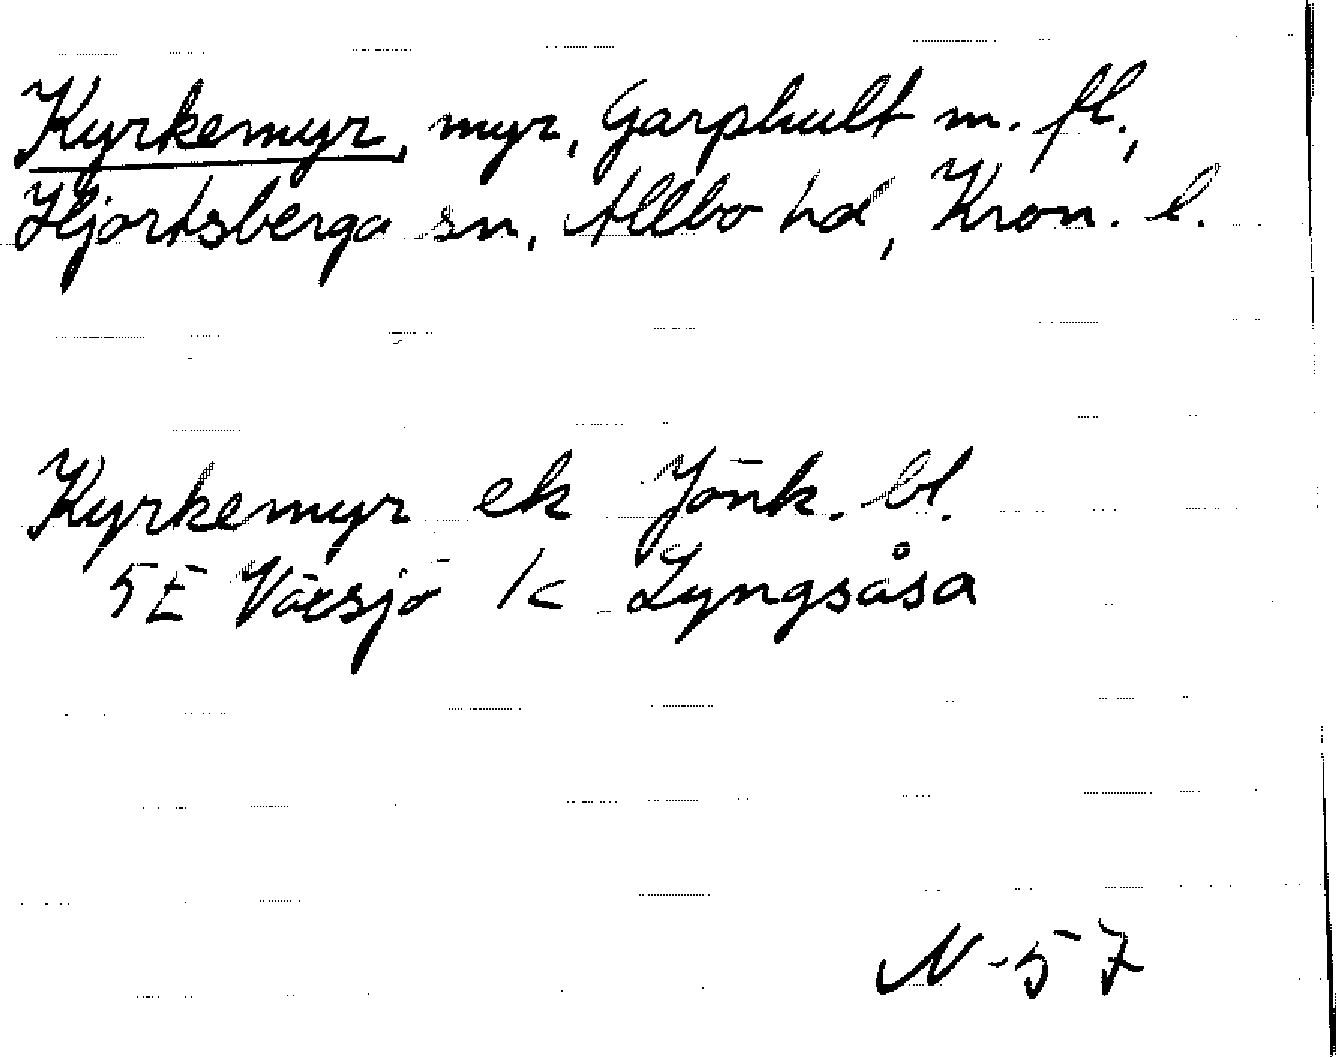 Kyrkemyr, myr, Garphult m. fl.,
Hjortsberga sn, Allbo hd, Kron. l.
Kyrkemyr ek Jönk. bl.
5E Växsjö k Lyngsåsa
N-57